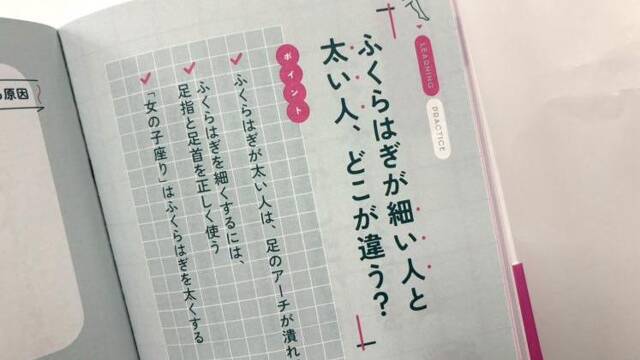 LEARNING
PRACTICE
ふくらはぎが細い人と
太い人、どこが違う？
ポイント
ふくらはぎが太い人は、足のアーチが潰れ
ふくらはぎを細くするには、
足指と足首を正しく使う
「女の子座り」はふくらはぎを太くする
原因